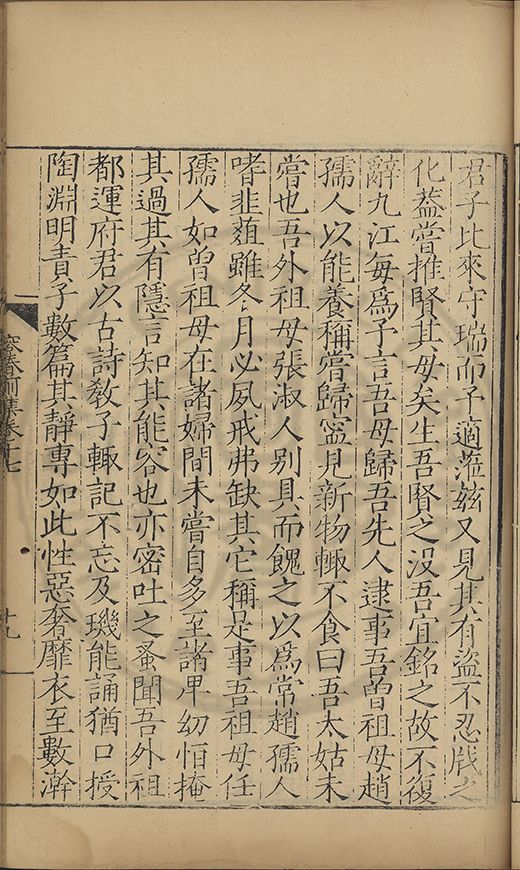 君子比來守瑞而予適蒞茲又見其有盜不忍戕之
化蓋嘗推賢其母矣生吾賢之沒吾宜銘之故不復
辭九江每為予言吾母歸吾先人逮事吾曾祖母趙
孺人以能養稱嘗歸寍見新物輙不食曰吾太姑未
嘗也吾外祖母張淑人別具而餽之以為常趙孺人
嗜韭薤雖冬月必夙戒弗缺其它稱是事吾祖母任
孺人如曾祖母在諸婦間未嘗自多至諸卑幼怕掩
其過其有隱言知其能容也亦密吐之蚤聞吾外祖
都運府君以古詩教子輙記不忘及璣能誦猶口授
陶淵明責子數篇其靜專如此性惡奢靡衣至數澣
容春
集卷十七
十九